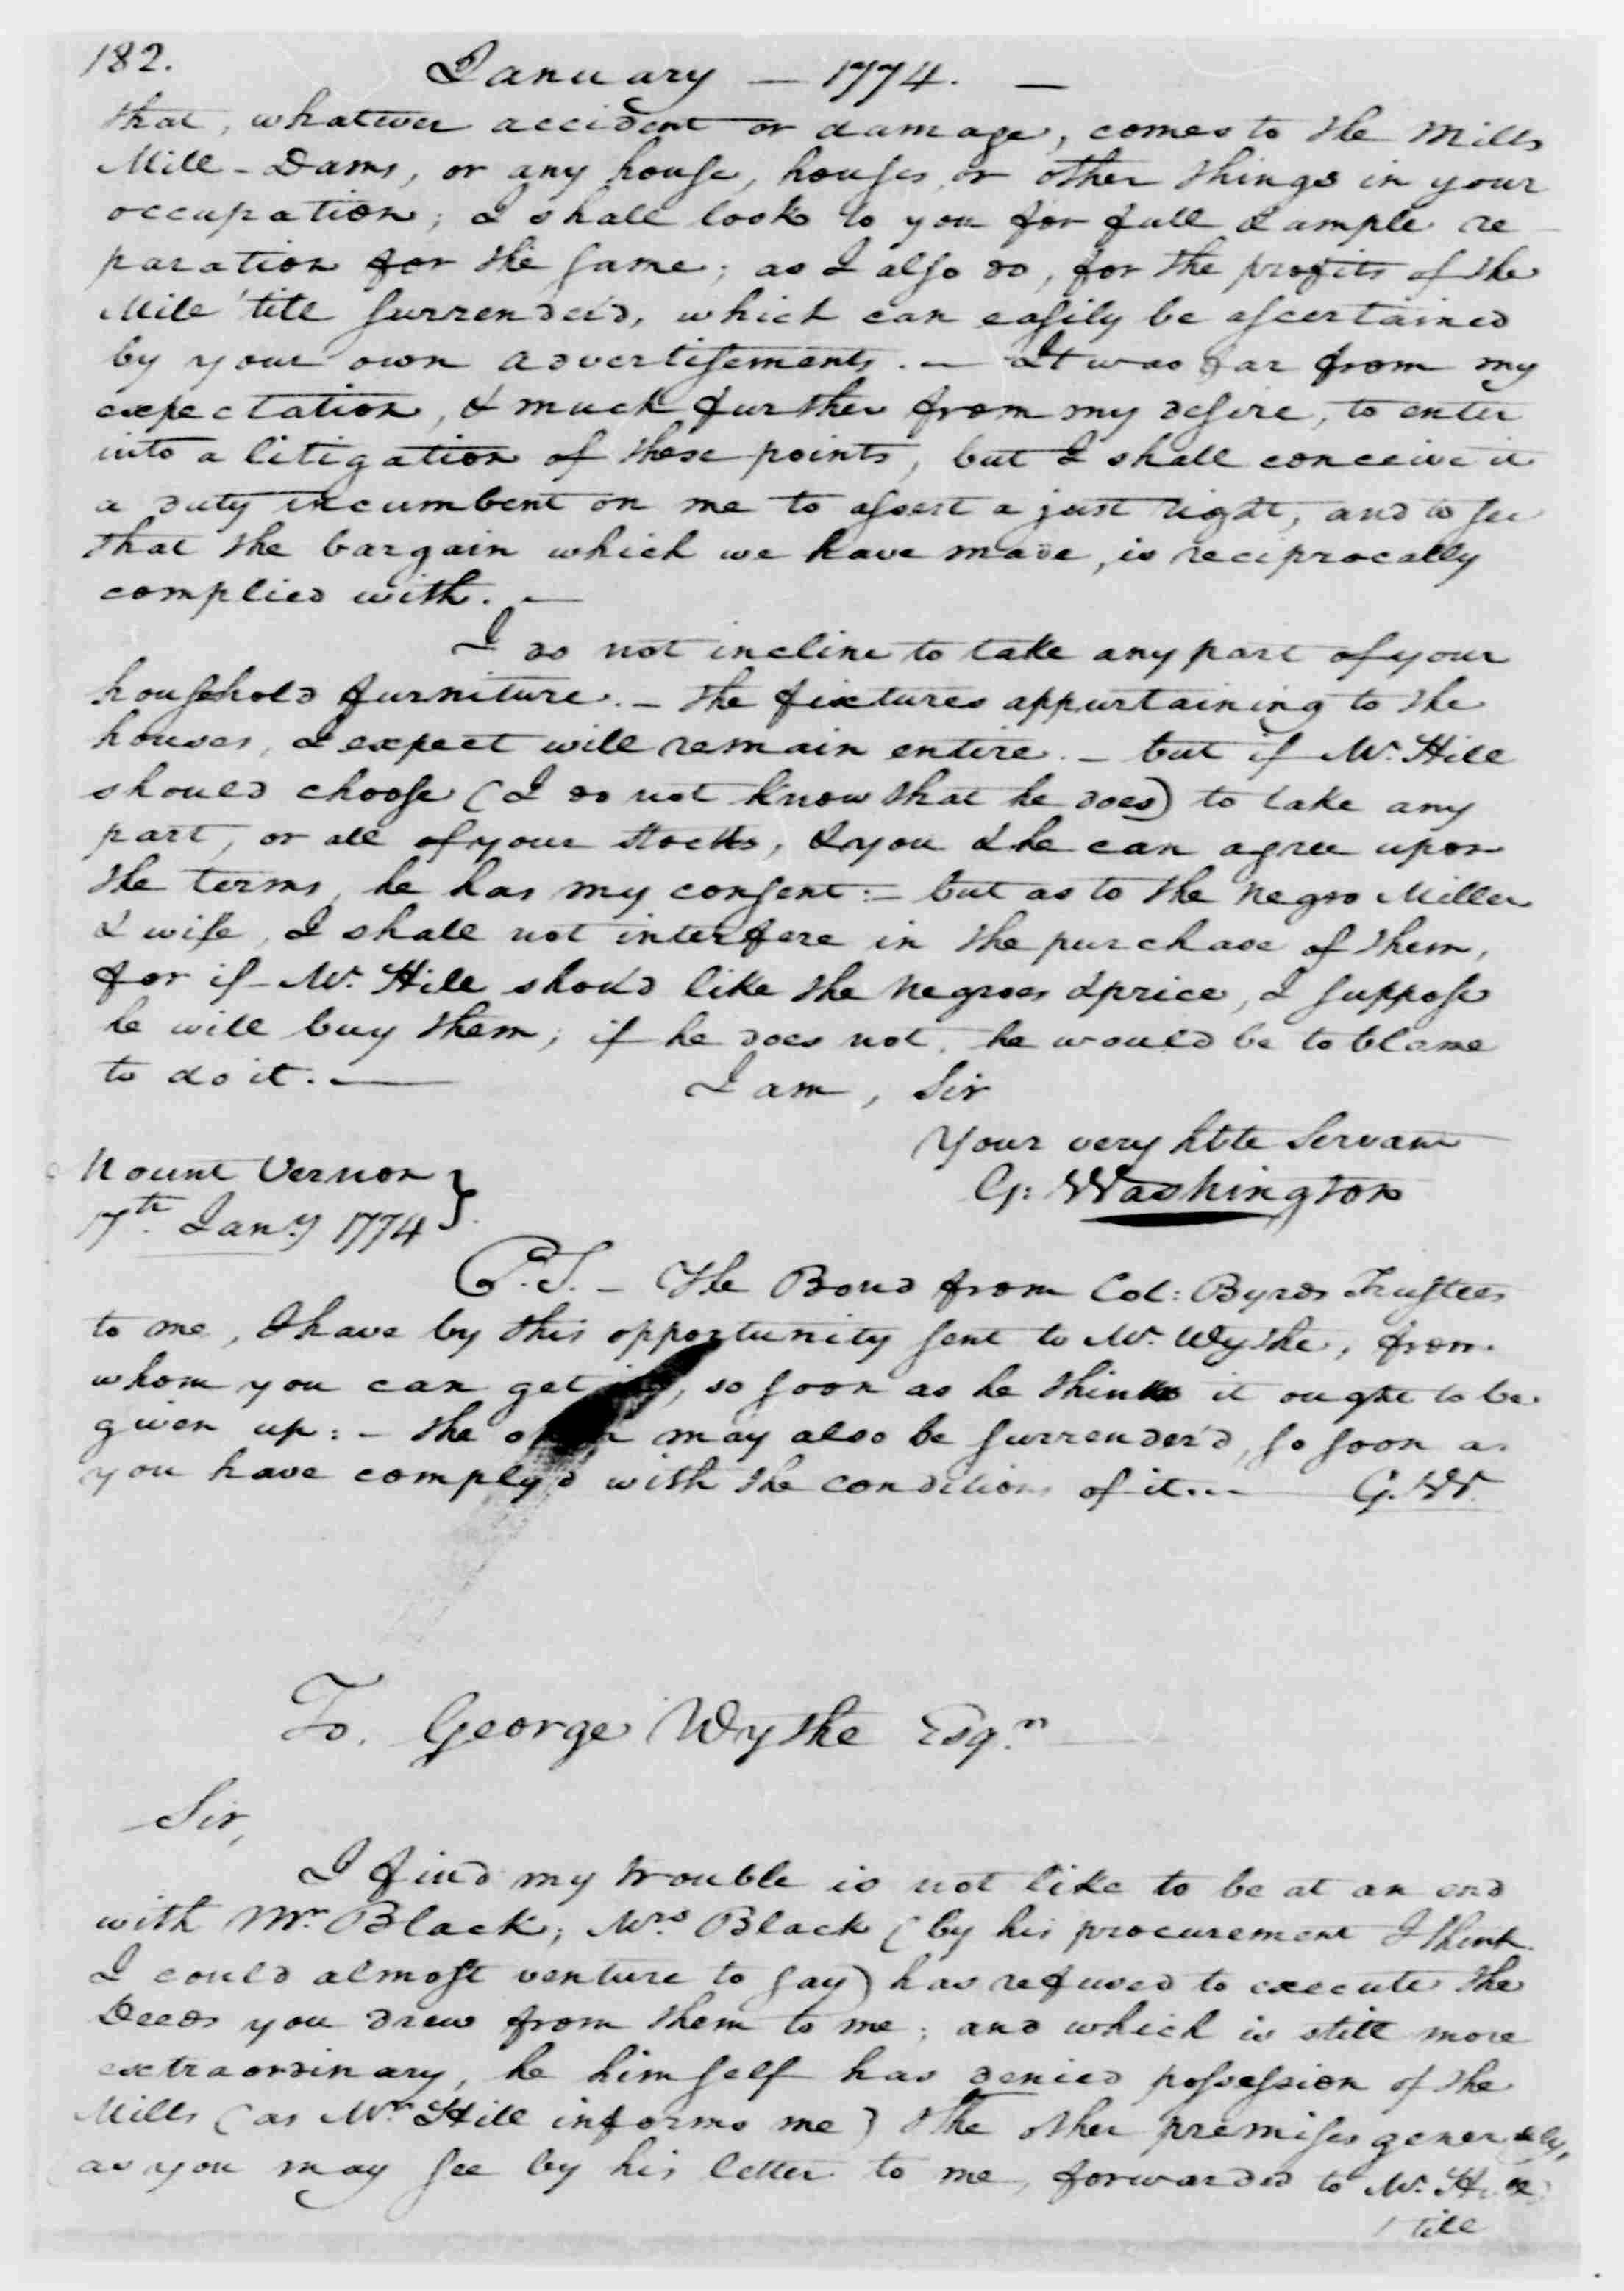 182.
January — 1774. —
that, whatever accident or damage, comes to the Mills
Mill-Dams, or any house, houses, or other things in your
occupation; I shall look to you for full & ample re
paration for the same; as I also do, for the profits of the
Mill 'till surrender'd, which can easily be ascertained
by your own advertisements. — It was far from my
expectation, & much further from my desire, to enter
into a litigation of these points, but I shall conceive it
a duty incumbent on me to assert a just right, and to see
that the bargain which we have made, is reciprocally
complied with. —
I do not incline to take any part of your
household furniture. — The fixtures appurtaining to the
houses, I expect will remain entire. — but if Mr. Hill
should choose (I do not know that he does) to take any
part, or all of your stocks, & you & he can agree upon
the terms, he has my consent: — but as to the negro Miller
& wife, I shall not interfere in the purchase of them,
for if Mr. Hill shou'd like the negroes & price, I suppose
he will buy them; if he does not, he would be to blame
to do it. —
I am, Sir
Your very hble Servant
G: Washington
Mount Vernon }
17th. Jany. 1774 }.
P.S. — The Bond from Col: Byrds Trustees
to me, I have by this opportunity sent to Mr. Wythe, from
whom you can get, so soon as he thinks it ought to be
given up: — the may also be surrender'd, so soon as
you have comply'd with the conditions of it. — G.W.
To. George Wythe Esqr.
Sir,
I find my trouble is not like to be at an end
with Mr. Black; Mrs. Black (by his procurement I think
I could almost venture to say) has refused to execute the
Deeds you drew from them to me; and which is still more
extraordinary, he himself has denied possession of the
Mills (as Mr. Hill informs me) & the other premises generally,
as you may see by his letter to me, forwarded to Mr. Hill
till